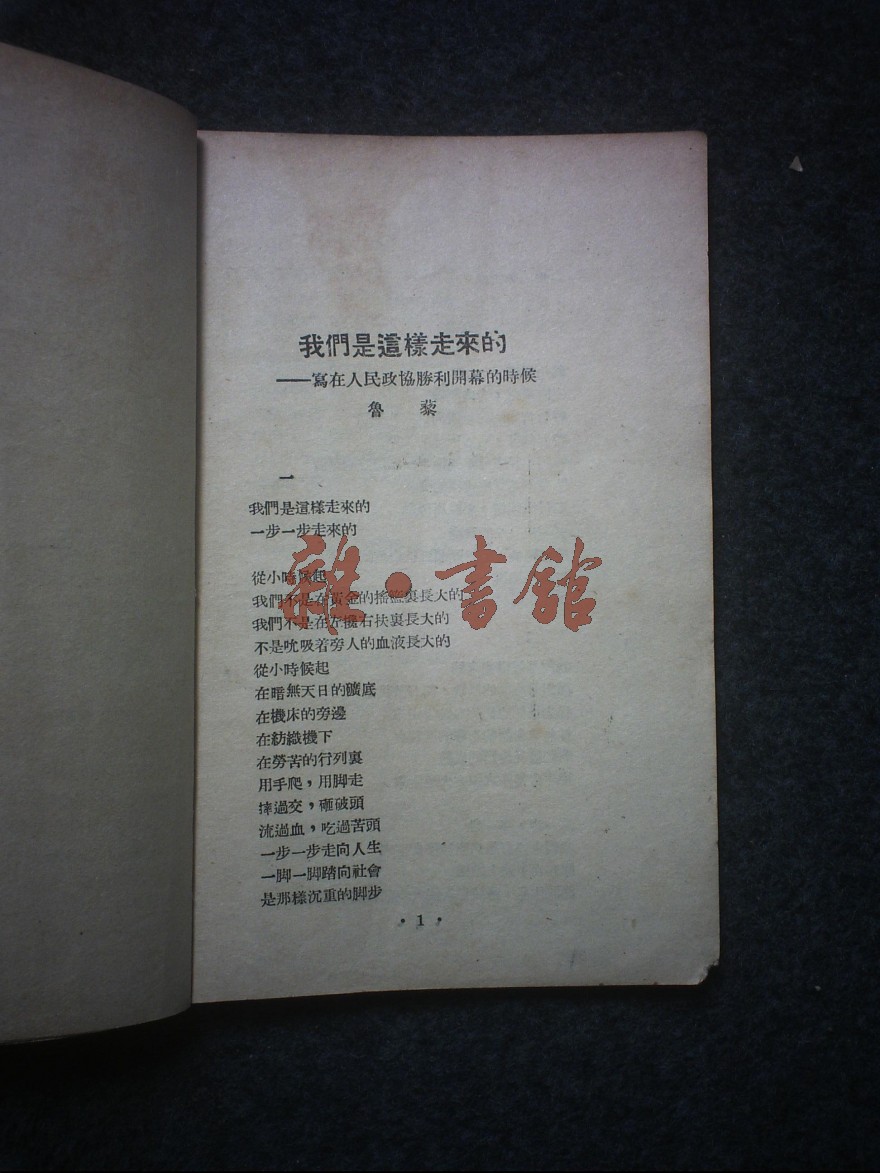 我們是這樣走來的
——寫在人民政協勝利開幕的時候
魯 藜
一
我們是這樣走來的
一步一步走來的
從小時候起
我們不是在黃金的搖籃裏長大的
我們不是在左攙右扶裏長大的
不是吮吸着旁人的血液長大的
從小時候起
在暗無天日的礦底
在機床的旁邊
在紡織機下
在勞苦的行列裏
用手爬，用脚走
摔過交，砸破頭
流過血，吃過苦頭
一步一步走向人生
一脚一脚踏向社會
是那樣沉重的脚步
·1·
雜·書館